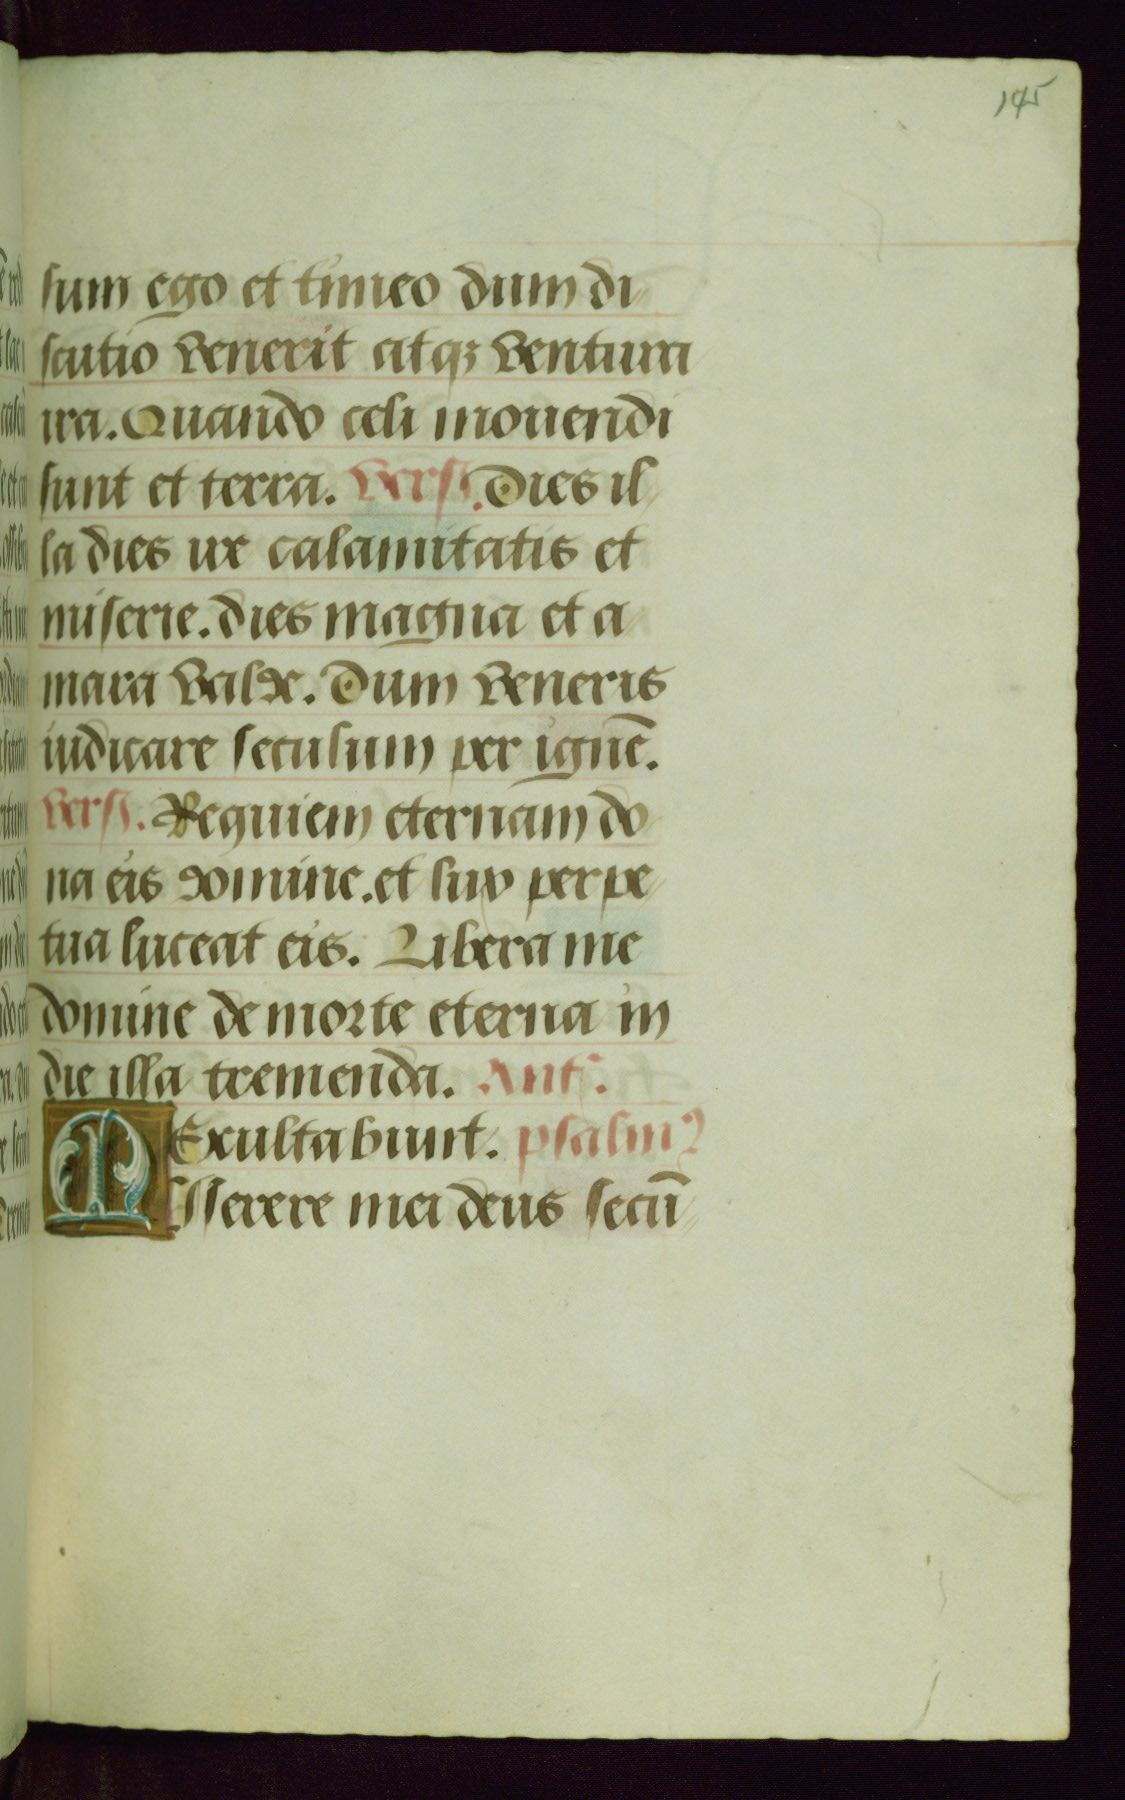 145
sum ego et timeo dum di
scutio venerit atqꝫ ventura
ira. Quando celi mouendi
sunt et terra. Vers. Dies il
la dies ire calamitatis et
miserie. dies magna et a
mara valde. Dum veneris
iudicare seculum per ignē.
Vers. Requiem eternam do
na eis domine. et lux perpe
tua luceat eis. Libera me
domine de morte eterna in
die illa tremenda. Ant.
Exultabunt. psalmꝰ
Misserere mei deus secū